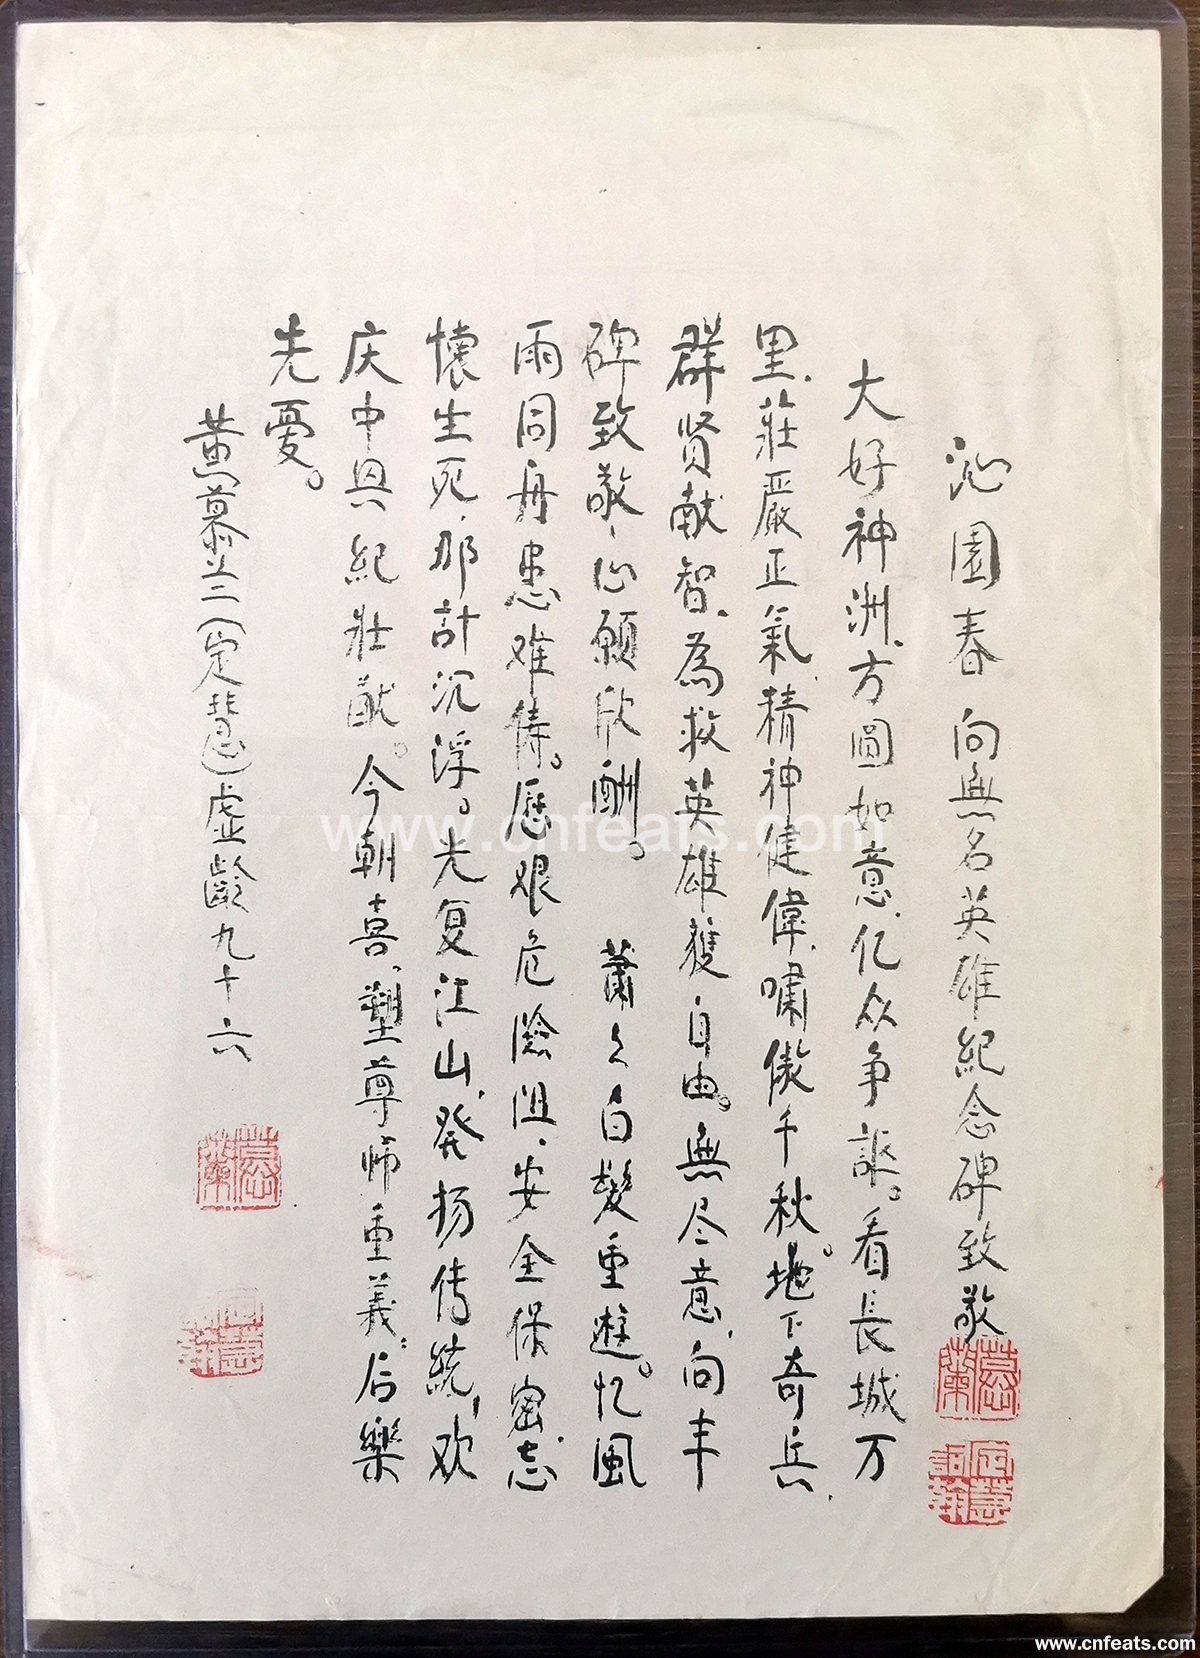 沁園春 向無名英雄紀念碑致敬
大好神洲、方圓如意、亿众争謳。看長城万
里、莊嚴正氣、精神健偉、嘯傲千秋。地下奇兵、
群贤献智、為救英雄獲自由。無尽意、向丰
碑致敬、心願欣酬。 蕭々白髮重遊。忆風
雨同舟患难俦。歷艰危險阻、安全保密、忘
懷生死、那計沉浮。光复江山、発扬传統、欢
庆中興紀壯猷。今朝喜、塑尊师重義、后樂
先憂。
黄慕兰(定慧)虚齡九十六
慕蘭
定慧
慕蘭
定慧
www.cnfeats.com
www.cnfeats.com